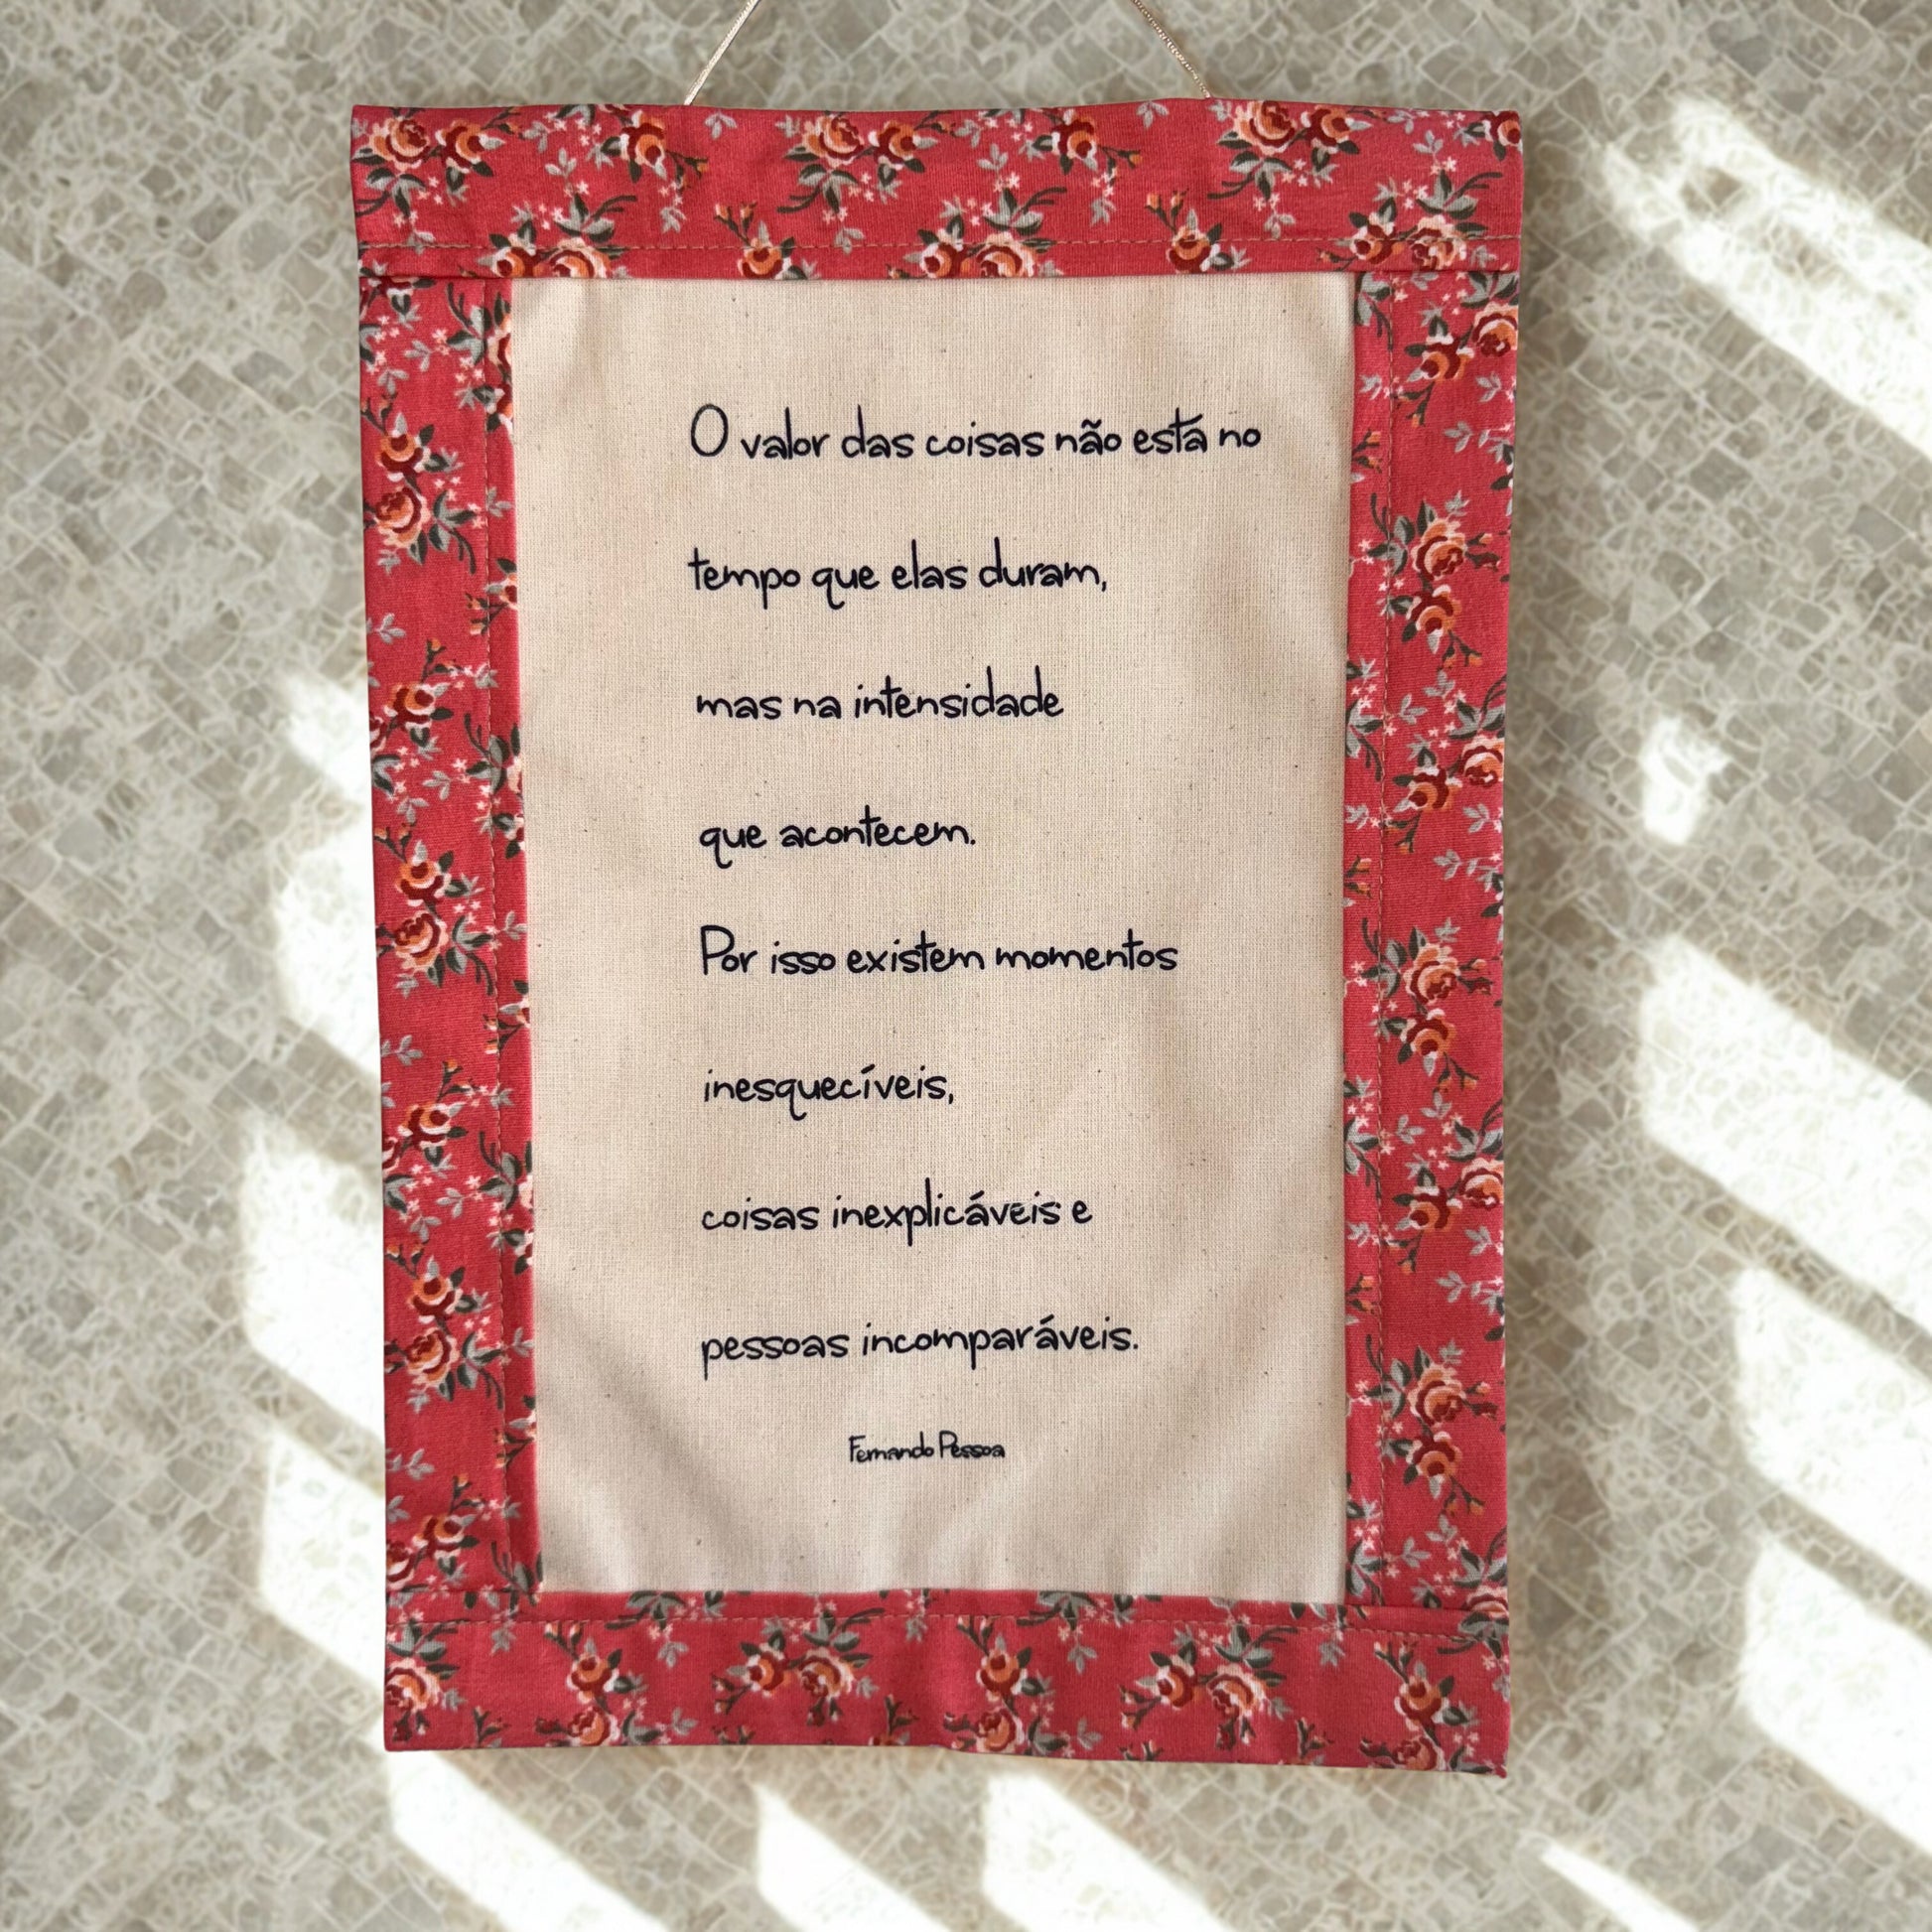 O valor das coisas não está no
tempo que elas duram,
mas na intensidade
que acontecem.
Por isso existem momentos
inesquecíveis,
coisas inexplicáveis e
pessoas incomparáveis.
Fernando Pessoa